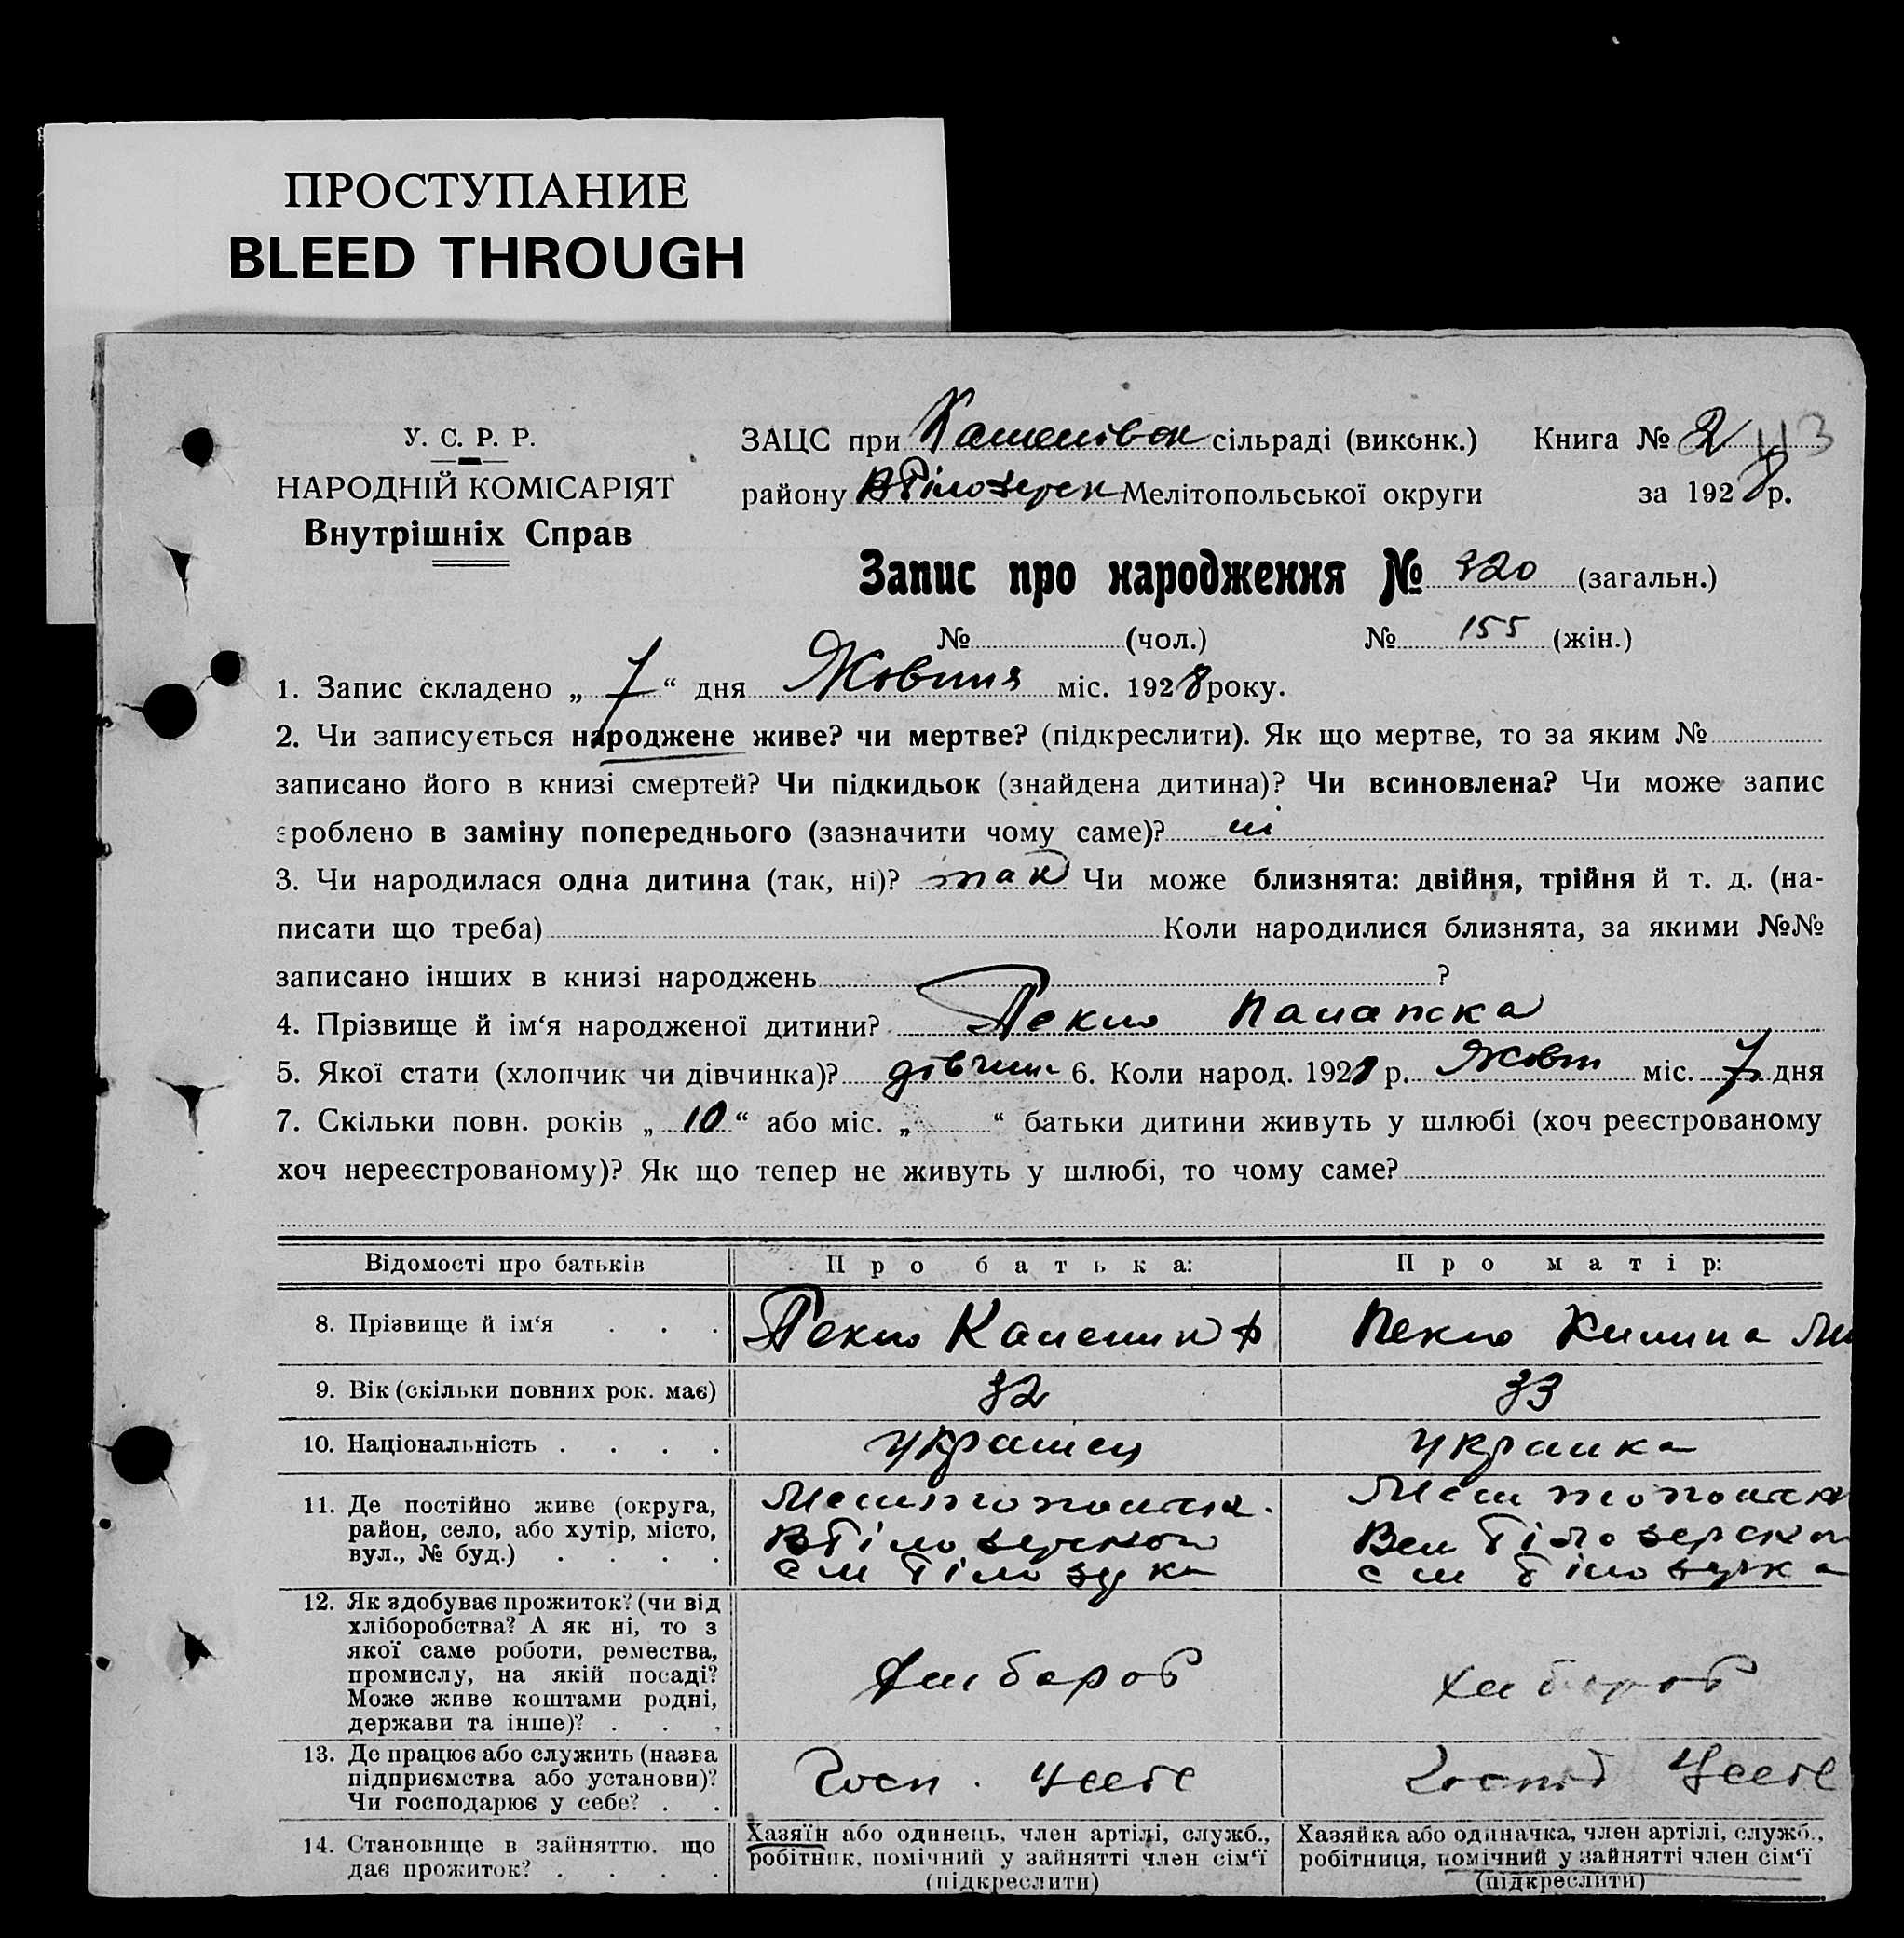 ПРОСТУПАНИЕ
BLEED THROUGH
У. С. Р. Р.
НАРОДНІЙ КОМІСАРІЯТ
Внутрішніх Справ
ЗАЦС при сільраді (виконк.) Книга № 2 113
району Мелітопольської округи за 1928 р.
Запис про народження № 320 (загальн.)
№ (чол.) № 155 (жін.)
1. Запис складено „ 7 “ дня Жовтня міс. 1928 року.
2. Чи записується народжене живе? чи мертве? (підкреслити). Як що мертве, то за яким №
записано його в книзі смертей? Чи підкидьок (знайдена дитина)? Чи всиновлена? Чи може запис
зроблено в заміну попереднього (зазначити чому саме)? ні
3. Чи народилася одна дитина (так, ні)? так Чи може близнята: двійня, трійня й т. д. (на-
писати що треба) Коли народилися близнята, за якими №№
записано інших в книзі народжень ?
4. Прізвище й ім‘я народженої дитини? Пекло
5. Якої стати (хлопчик чи дівчинка)? дівчин 6. Коли народ. 1928 р. Жовт міс. 7 дня
7. Скільки повн. років „ 10 “ або міс. „ “ батьки дитини живуть у шлюбі (хоч реєстрованому
хоч нереєстрованому)? Як що тепер не живуть у шлюбі, то чому саме?
Відомості про батьків Про батька: Про матір:
8. Прізвище й ім‘я . . . Пекло Каленик Ф Пекло Килина
9. Вік (скільки повних рок. має) 32 33
10. Національність . . . . украинец украинка
11. Де постійно живе (округа,
район, село, або хутір, місто,
вул., № буд.) . . . .
Мелитопольск.
Білозерськ
см Білозерка
Мелитопольск
Вел Білозерськ
с м Білозерка
12. Як здобуває прожиток? (чи від
хліборобства? А як ні, то з
якої саме роботи, ремества,
промислу, на якій посаді?
Може живе коштами родні,
держави та інше)? . . .
Хлібороб
Хлібороб
13. Де працює або служить (назва
підприємства або установи)?
Чи господарює у себе? . .
Госп. у себе
Господ у себе
14. Становище в зайняттю, що
дає прожиток? . . . .
Хазяїн або одинець, член артілі, служб.,
робітник, помічний у зайнятті член сім‘ї
(підкреслити)
Хазяйка або одиначка, член артілі, служб.,
робітниця, помічний у зайнятті член сім‘ї
(підкреслити)